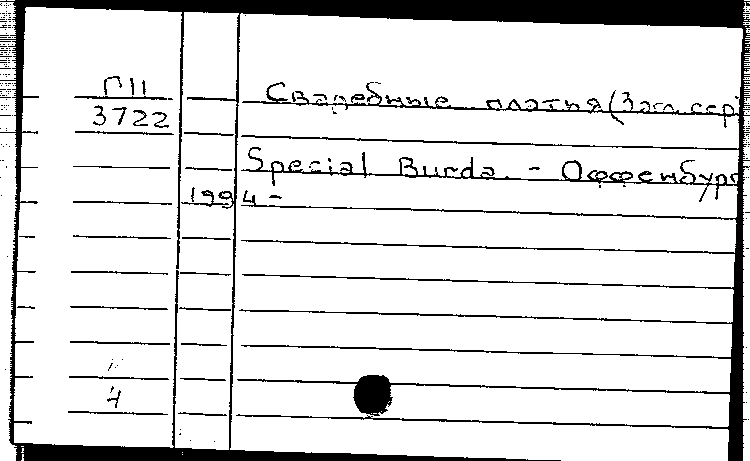 П11
3722
Свадебные платья (Загл. сер
Special Burda. - Оффенбург
1994 -
4